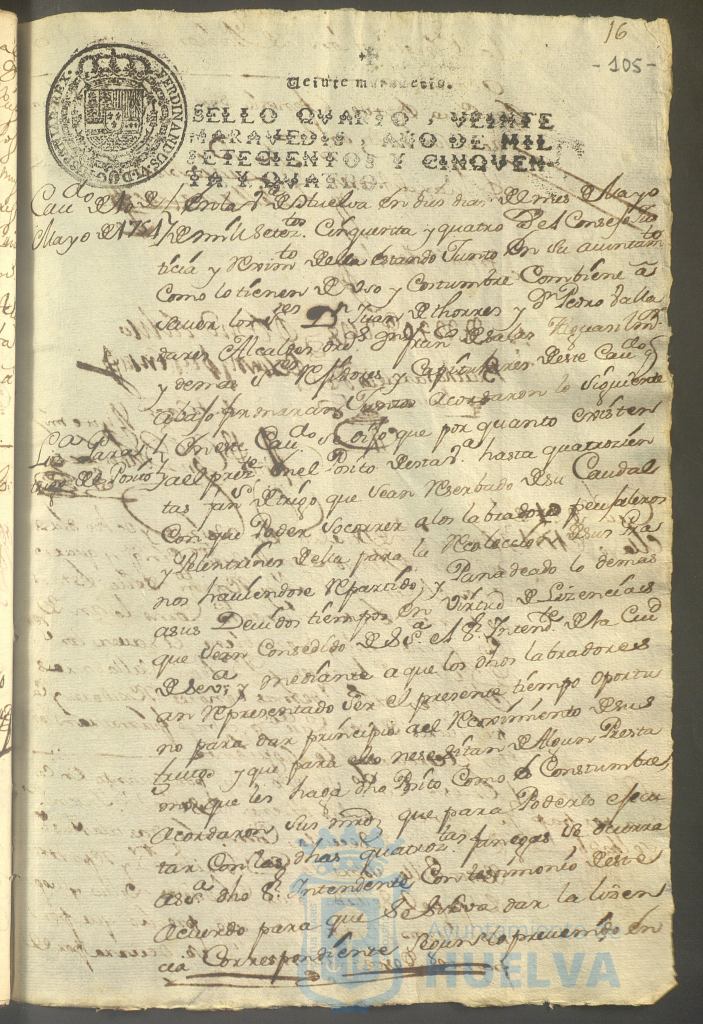 16
- 105 -
Veinte maravedis.
FERDINANDUS VI D.G. HISPANIAR. REX.
SELLO QVARTO, VEINTE
MARAVEDIS, AÑO DE MIL
SETECIENTOS Y CINQVEN-
TA Y QVATRO.
Cavdo de 12 de
Mayo de 1754
En la Va de Huelva en dus dias del mes de Mayo
de mill setezos Cinquenta y quatro el Consejo Jus
ticia y Reximto della estando Junto en su aiuntamto
Como lo tienen de uso y Costumbre Combiene a
saver los sres Dn Juan de thorres y Dn Pedro
Alcaldes ordins
y demas sres Rexidores y Capitulares deste Cavdo q
abajo firmaran Juntos Acordaron lo siguiente
Lizca para
del Posito
En este Cavdo se dijo que por quanto existen
al preste en el Posito desta Va hasta quatrozien
tas fans de trigo que sean Reserbado de su Caudal
Con que Poder Socorrer a los labradores pegujaleros
y Pelentrines della para la Recoleccion de sus Gra
nos haviendose Repartido y Panadeado lo demas
a sus Devidos tiempos en virtud de Lizencias
que sean Consedido de Sa el Sr Intendte de la Ciud
de Seva y mediante a que los dhos labradores
an Representado ser el presente tiempo oportu
no para dar principio a el Recoximiento de sus
frutos y que para ello nesesitan de Algun Presta
mo que les haga dho Posito Como es Constumbre,
Acordaron sus mrds que para Poderlo efecu
tar Con las dhas quatroztas fanegas se ocurra
a sa dho Sr Intendente Con testimonio deste
Acuerdo para que se sirva dar la lizen
cia Correspondiente segun lo prevenido en
Ayuntamiento de
HUELVA